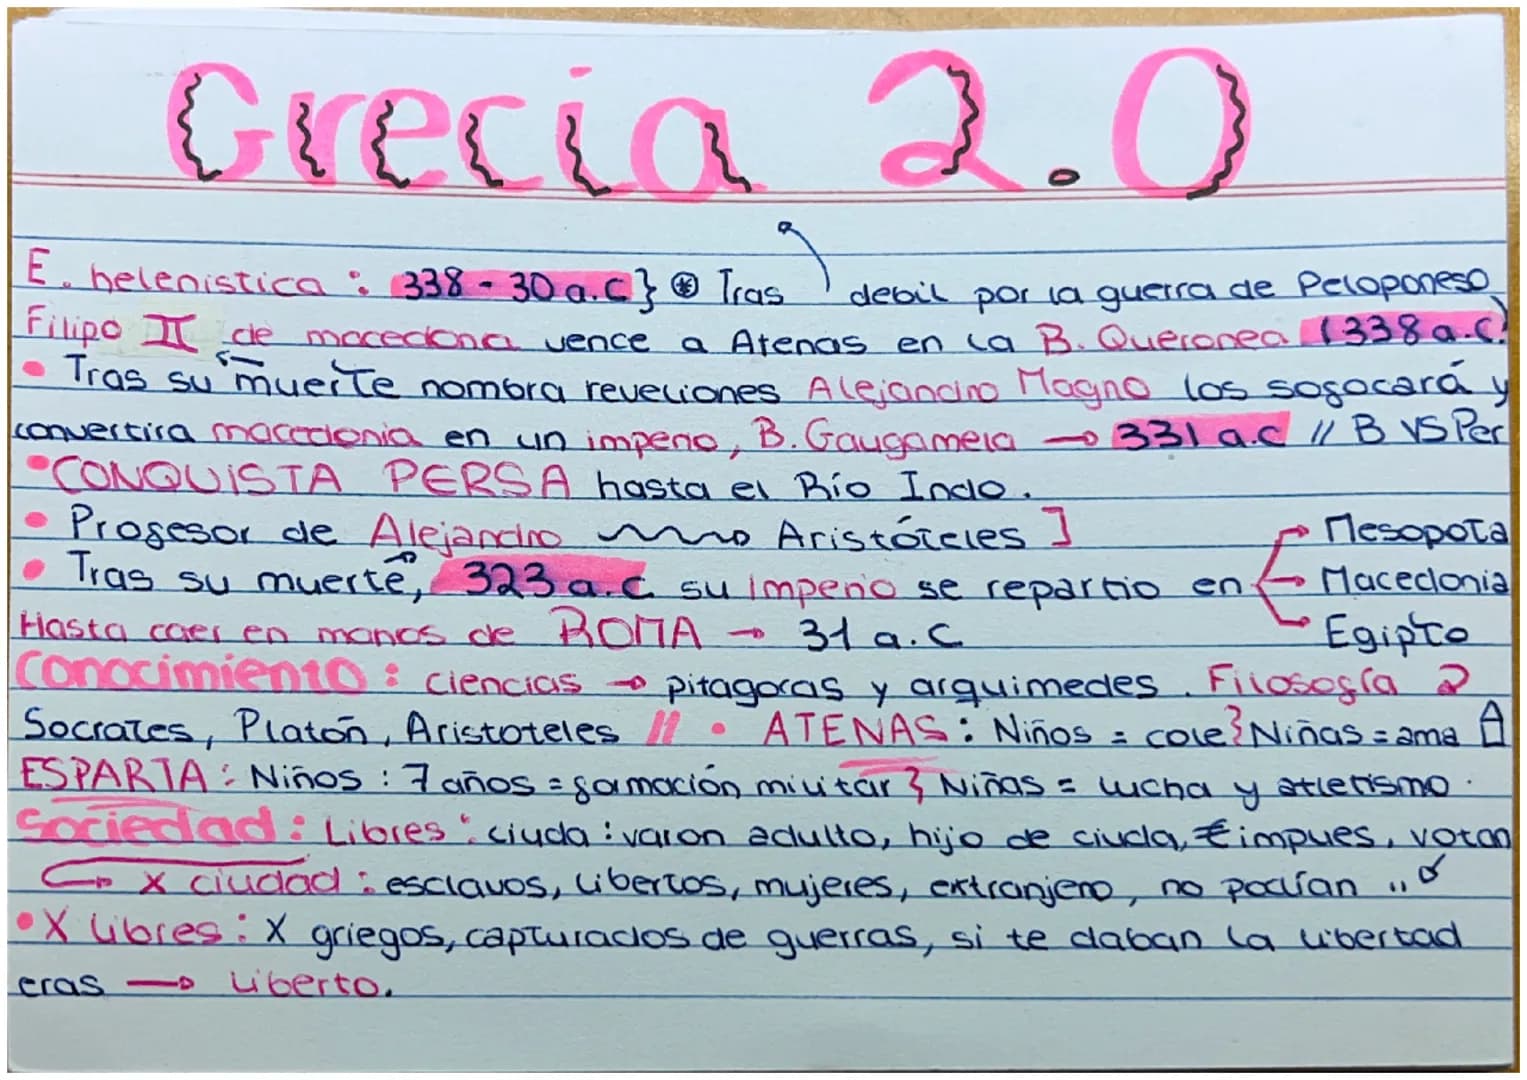 Grecia 2.0
E. helenistica : 338 - 30 a.C } * Tras debil por la guerra de Peloponeso
Filipo II de macedona vence a Atenas en la B. Queronea (338 a.C)
• Tras su muerte nombra reveliones Alejandro Magno los sofocará y
convertira macedonia en un imperio, B. Gaugamela → 331 a.C // B VS Per
• CONQUISTA PERSA hasta el Río Indo.
• Profesor de Alejandro → Aristóteles ] Mesopota
• Tras su muerte, 323 a.C su Imperio se repartio en Macedonia
Hasta caer en manos de ROMA → 31 a.C Egipto
Conocimiento : ciencias → pitagoras y arquimedes. Filosofía
Socrates, Platón, Aristoteles // • ATENAS : Niños = cole } Niñas = ama
ESPARTA : Niños : 7 años = formación militar } Niñas = lucha y atletismo.
Sociedad : Libres : ciuda : varon adulto, hijo de ciuda, impues, votan
→ X ciudad : esclavos, libertos, mujeres, extranjero, no podían ,,
• X Libres : X griegos, capturados de guerras, si te daban la libertad
eras → liberto.